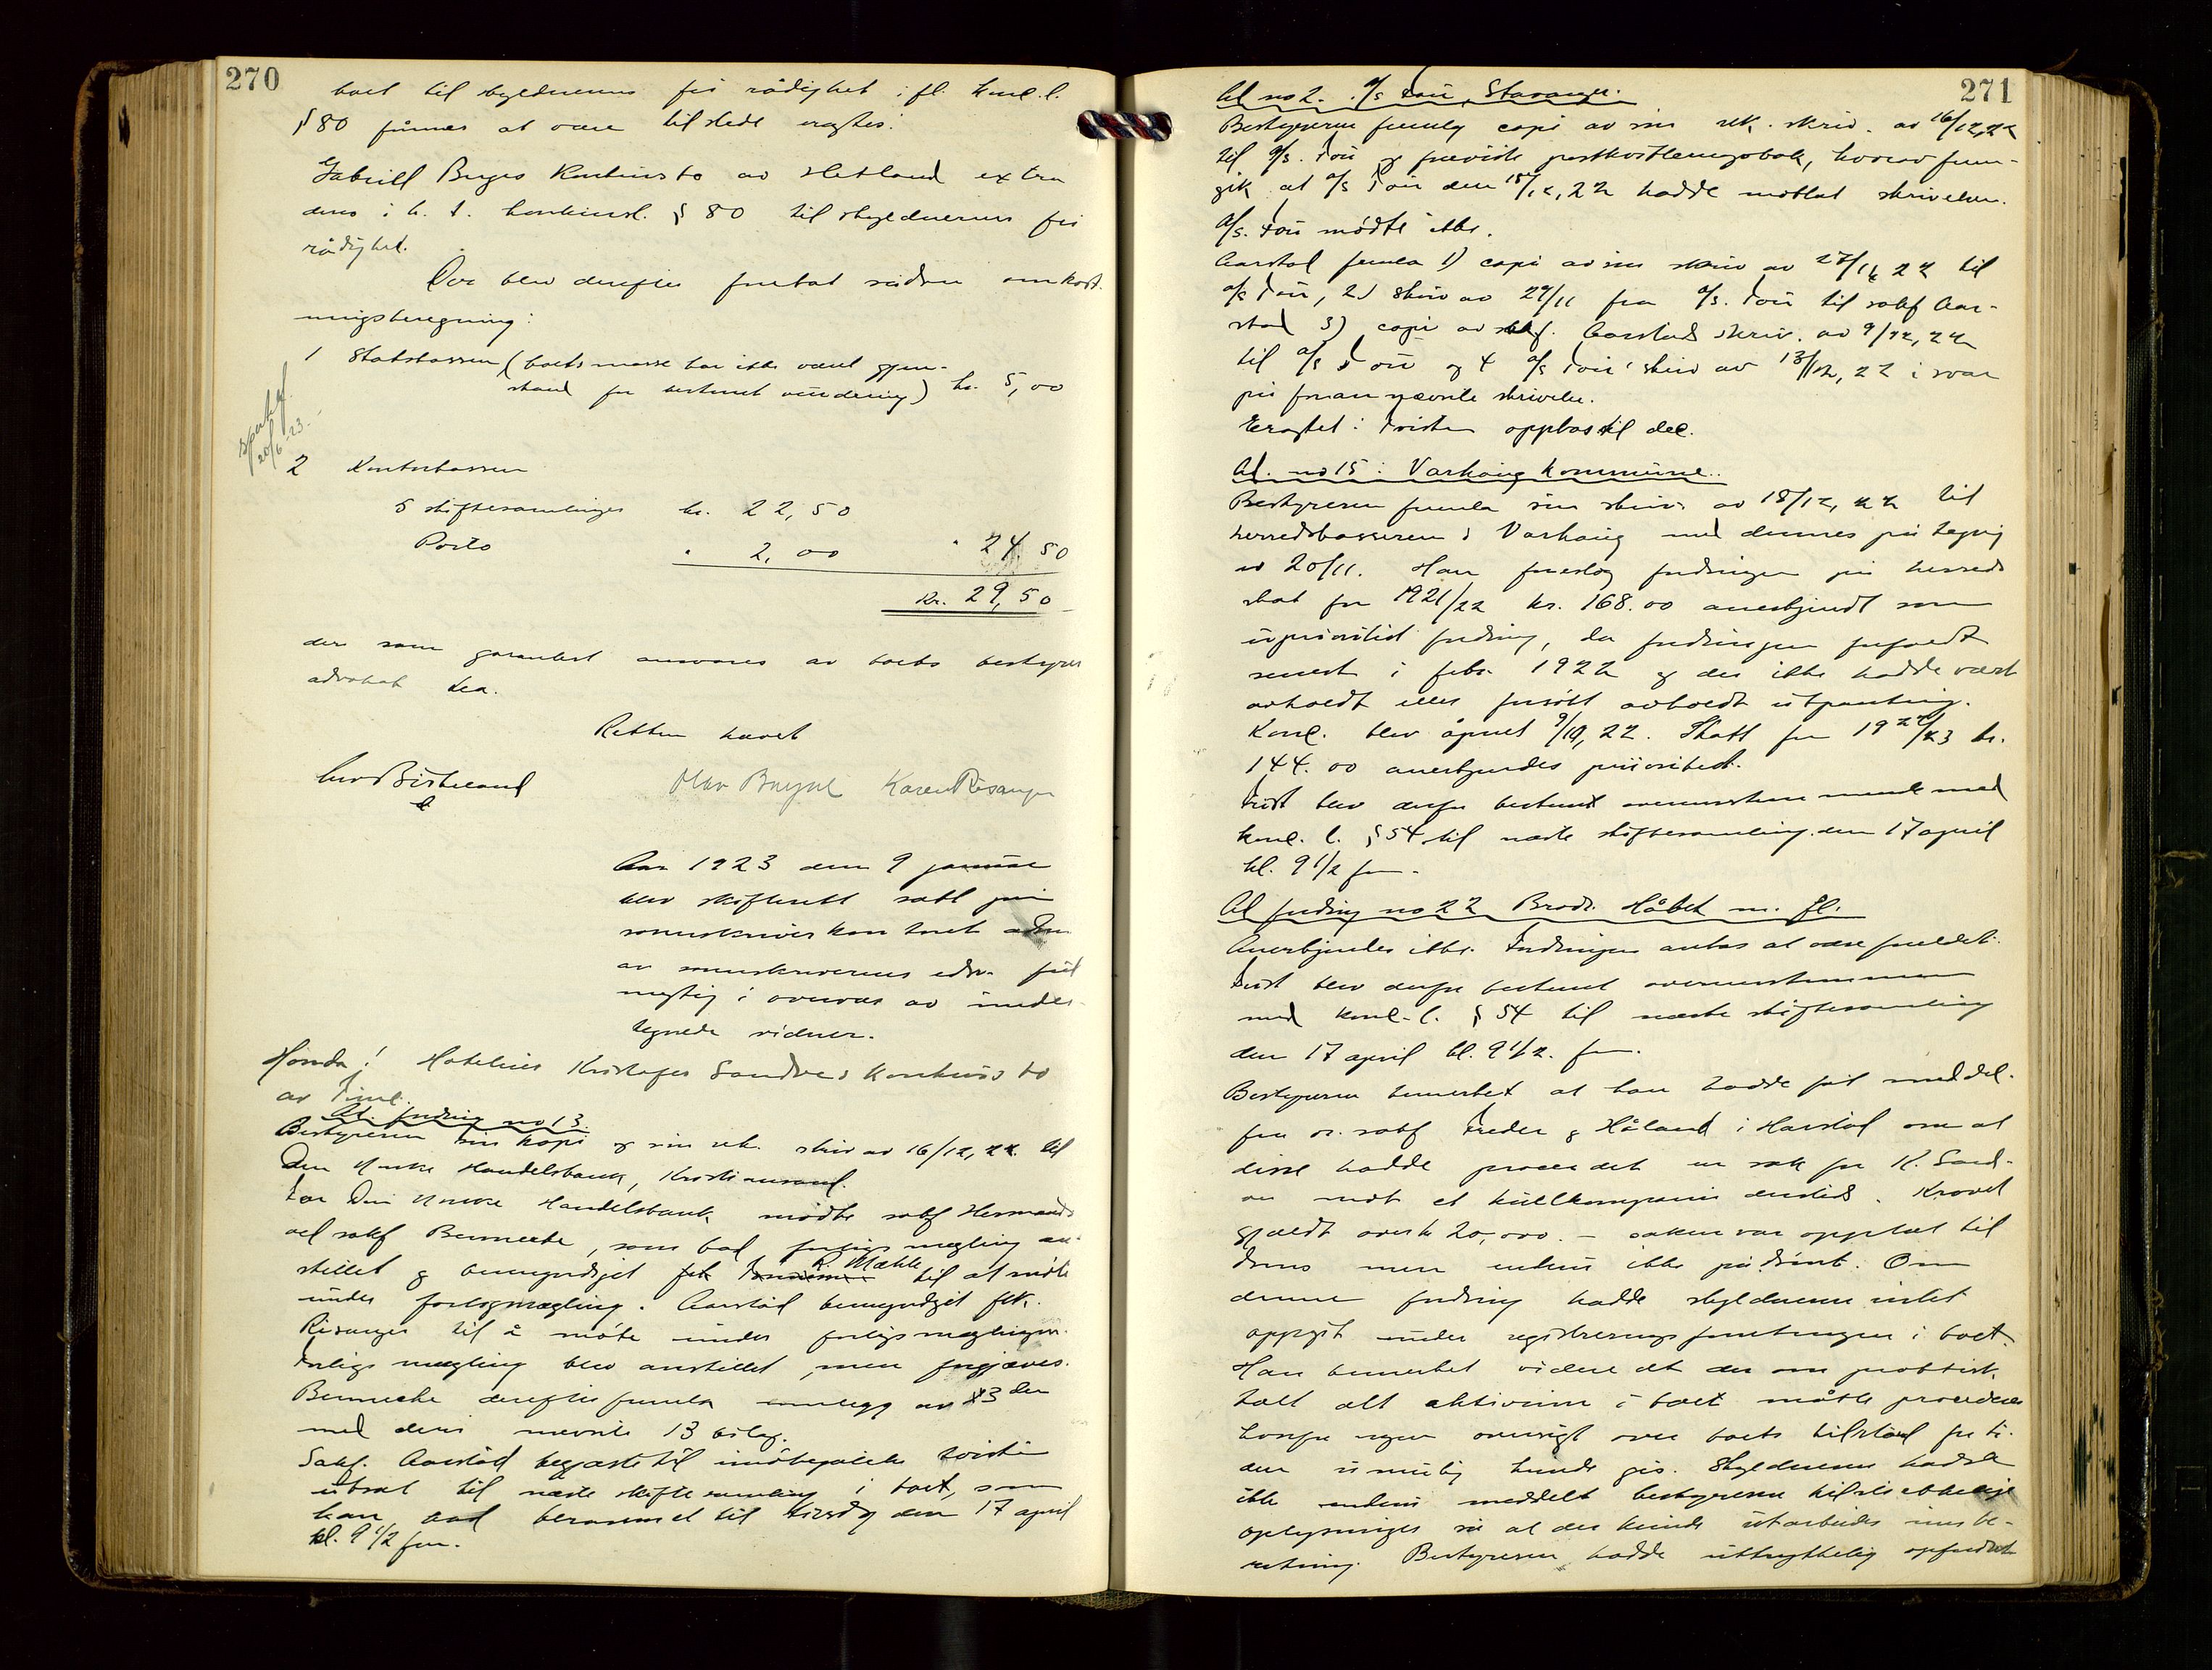 270
boet til skyldnerens fri rådighet i fl. konk.l.
§ 80 finnes at være tilstede eragtes:
Gabriell Bryes konkursbo av Hetland extra
deres i h. t. konkursl. § 80 til skyldnerens fri
rådighet.
Der blev derefter foretat sådan omkost-
ningsberegning:
1 Statskassen (boets masse har ikke været gjen-
stand for bestemt vurdering) kr. 5,00
20/6-23.
2 Kontorkassen
5 skiftesamlinger kr. 22,50
Porto " 2,00 " 24.50
Kr. 29,50
der som garantert ansvares av boets bestyrer
advokat Lea.
Retten hævet
Olav Bryne Karen Risanger
Aar 1923 den 9 januar
blev skifterett satt på
sorenskriverkontoret
av sorenskriverens edsv. full
megtig i overvær av under-
tegnede vidner.
Hotelier Kristofer Sandves konkursbo
av Time.
Ad. fordring no 13.
Bestyreren sin kopi og sin rek. skriv av 16/12, 22 til
Den Norske Handelsbank, Kristiansand.
For Den Norske Handelsbank møtte sakf Hermans
ved sakf Bennecke, som bad forligsmegling an-
stillet og bemyndiget frk R. Mæhle til at møte
under forligsmegling. Aarstad bemyndiget frk.
Risanger til å møte under forligsmeglingen.
Forligsmegling blev anstillet, men forgjæves.
Bennecke derefter fremla innlegg av
med deri nevnte 13 bilag.
Sakf. Aarstad begjærte til imøtegåelse tvisten
utsat til næste skiftesamling i boet, som
han bad berammet til tirsdag den 17 april
kl. 9 1/2 fm.
271
Ad no 2. A/s Tou, Stavanger.
Bestyreren fremla copi av sin rek. skriv. av 16/12, 22
til A/s. Tou og foreviste postkvitteringsbok, hvorav frem-
gik at A/s Tou den 18/12, 22 hadde mottat skrivelsen.
A/s. Tou møtte ikke.
Aarstad fremla 1) copi av sin skriv av 27/11 22 til
A/s Tou, 2) skriv av 29/11 fra A/s. Tou til sakf Aar-
stad 3) copi av sakf. Aarstads skriv. av 9/12, 22
til A/s Tou og 4 A/s Tou's skriv av 13/12, 22 i svar
på foran nævnte skrivelse.
Eragtet: Tvisten opptas til del.
Ad. no 15: Varhaug kommune.
Bestyreren fremla sin skriv av 18/12, 22 til
herredskassereren i Varhaug med dennes på tegning
av 20/11. Han foreslog fordringen på herreds
skat for 1921/22 kr. 168.00 anerkjendt som
uprioritert fordring, da fordringen forfaldt
senest i febr. 1922 og der ikke hadde vært
avholdt eller forsøkt avholdt utpanting.
Konk. blev åpnet 9/10, 22. Skatt for 1922/23 kr.
144.00 anerkjendes prioritert.
Tvist blev derfor bestemt overensstemmende med
konk. l. § 54 til næste skiftesamling den 17 april
kl. 9 1/2 fm.
Ad fordring no 22 Brødr. Håbet m. fl.
Anerkjendes ikke. Fordringen antas at være foreldet.
Tvist blev derfor bestemt overensstemmen
med konk. l. § 54 til næste skiftesamling
den 17 april kl. 9 1/2. fm.
Bestyreren bemerket at han hadde fåt meddel.
fra or. sakf Treder & Håland i Harstad om at
disse hadde procedert en sak for K. Sand-
ve mot et kullkompani dersteds. Kravet
gjaldt over kr 20,000. – saken var opptat til
doms men endnu ikke på dømt. Om
denne fordring hadde skyldneren intet
oppgit under registreringsforretningen i boet.
Han bemerket videre at der om praktisk
talt alt aktivum i boet måtte procederes
hvorfor nogen oversigt over boets tilstand for ti-
den umulig kunde gis. Skyldneren hadde
ikke endnu meddelt bestyreren tilstrekkelige
oplysninger så at der kunde utarbeides innbe-
retning. Bestyreren hadde uttrykkelig opfordret